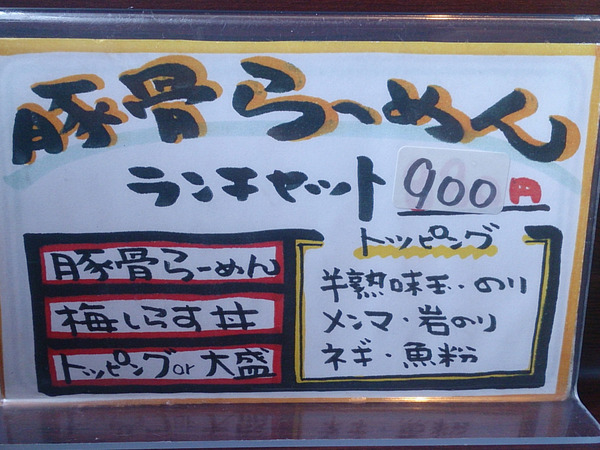 豚骨らーめん
ランチセット 900円
豚骨らーめん
梅しらす丼
トッピングor大盛
トッピング
半熟味玉・のり
メンマ・岩のり
ネギ・魚粉